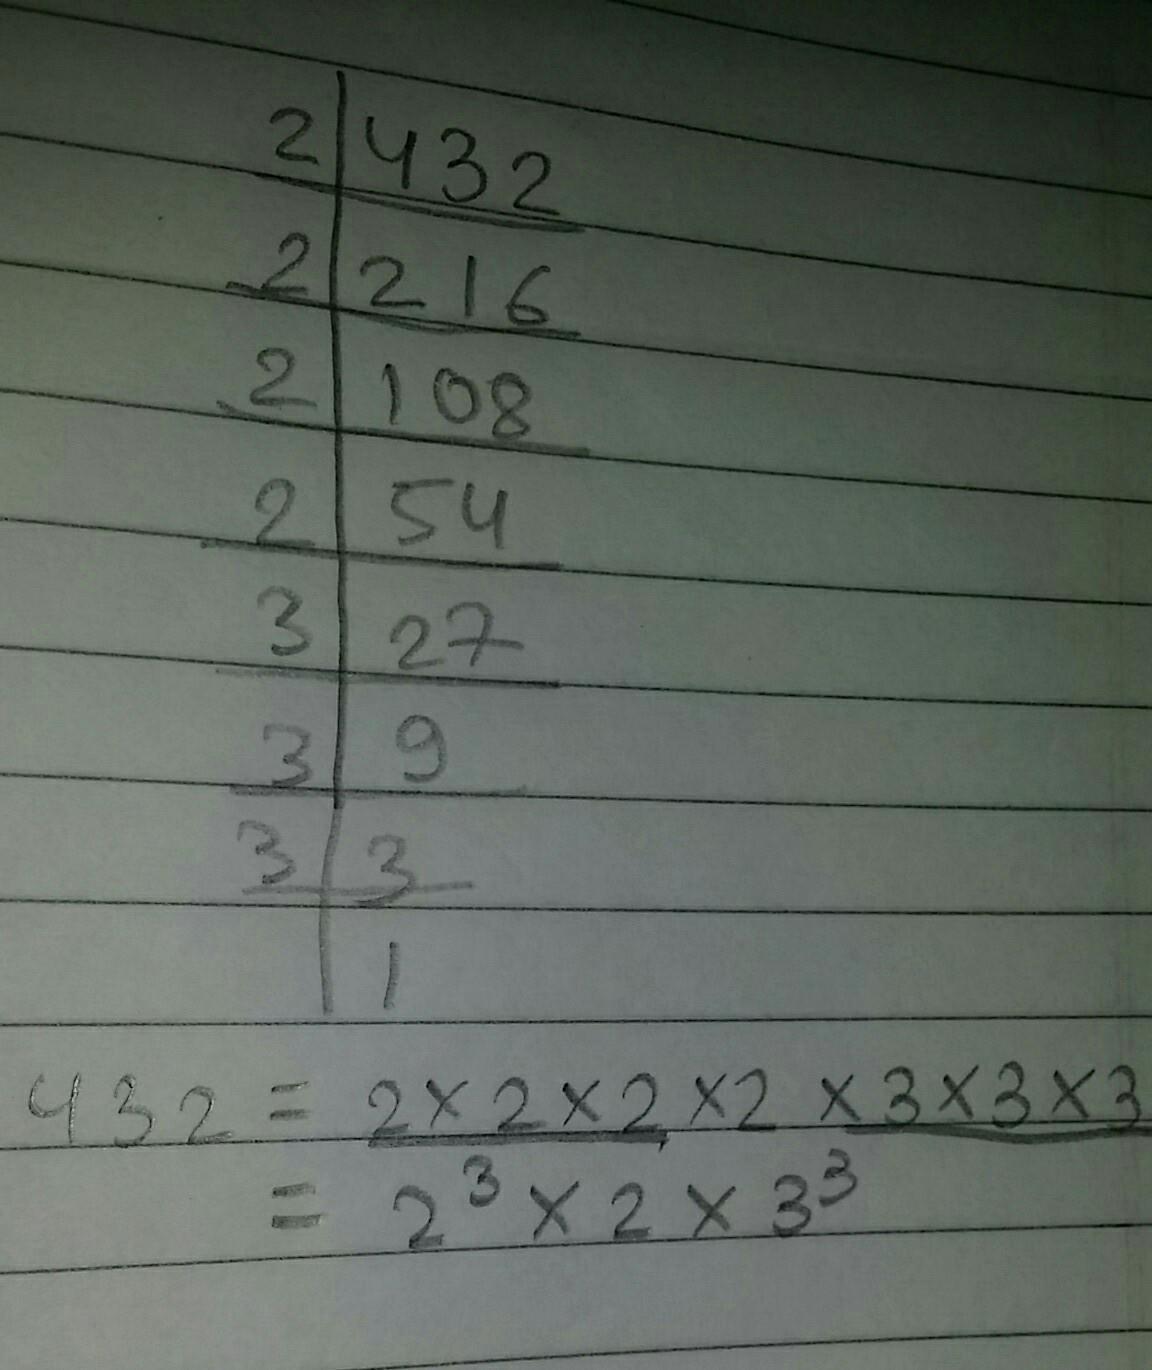 2 | 432
2 | 216
2 | 108
2 | 54
3 | 27
3 | 9
3 | 3
| 1
432 = 2 × 2 × 2 × 2 × 3 × 3 × 3
= 2³ × 2 × 3³